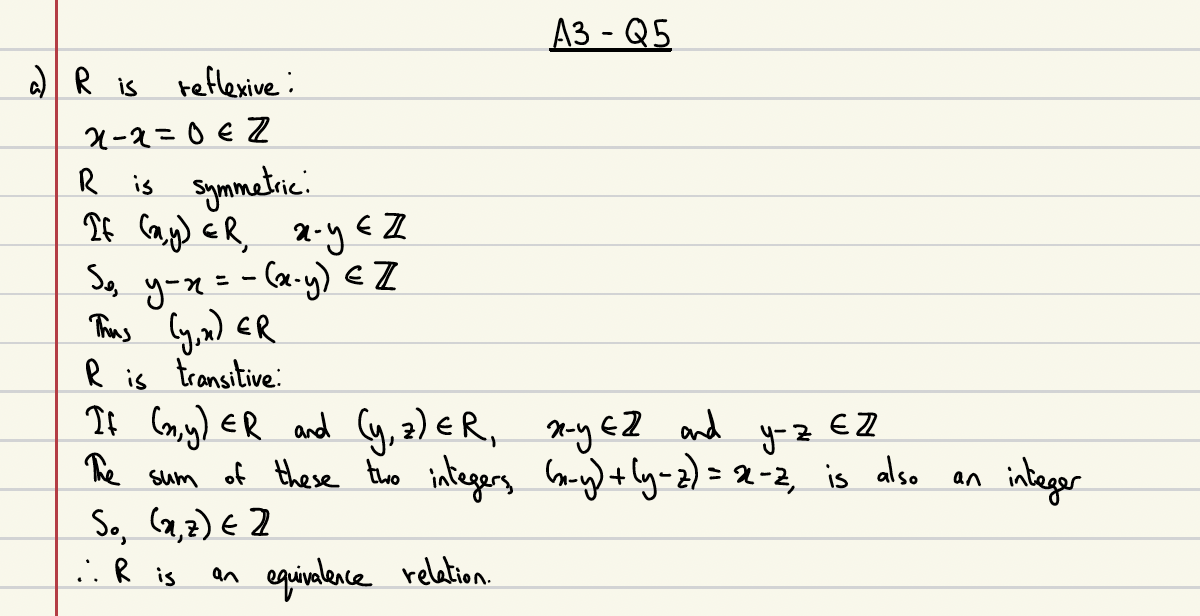 A3 - Q5
a) R is reflexive:
x-x = 0 ∈ ℤ
R is symmetric:
If (x,y) ∈ R, x-y ∈ ℤ
So, y-x = -(x-y) ∈ ℤ
Thus (y,x) ∈ R
R is transitive:
If (x,y) ∈ R and (y,z) ∈ R, x-y ∈ ℤ and y-z ∈ ℤ
The sum of these two integers, (x-y)+(y-z) = x-z, is also an integer
So, (x,z) ∈ ℤ
∴ R is an equivalence relation.